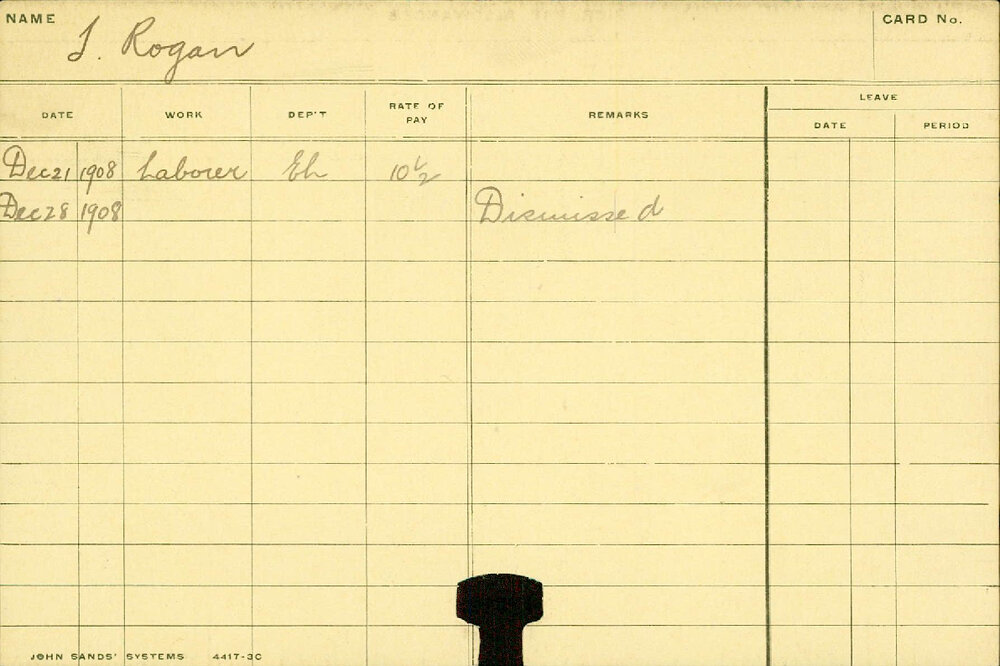 NAME J. Rogan CARD No.
DATE WORK DEP'T RATE OF PAY REMARKS LEAVE
DATE PERIOD
Dec 21 1908 Laborer Eh 10 1/2
Dec 28 1908 Dismissed
JOHN SANDS' SYSTEMS 4417-3C